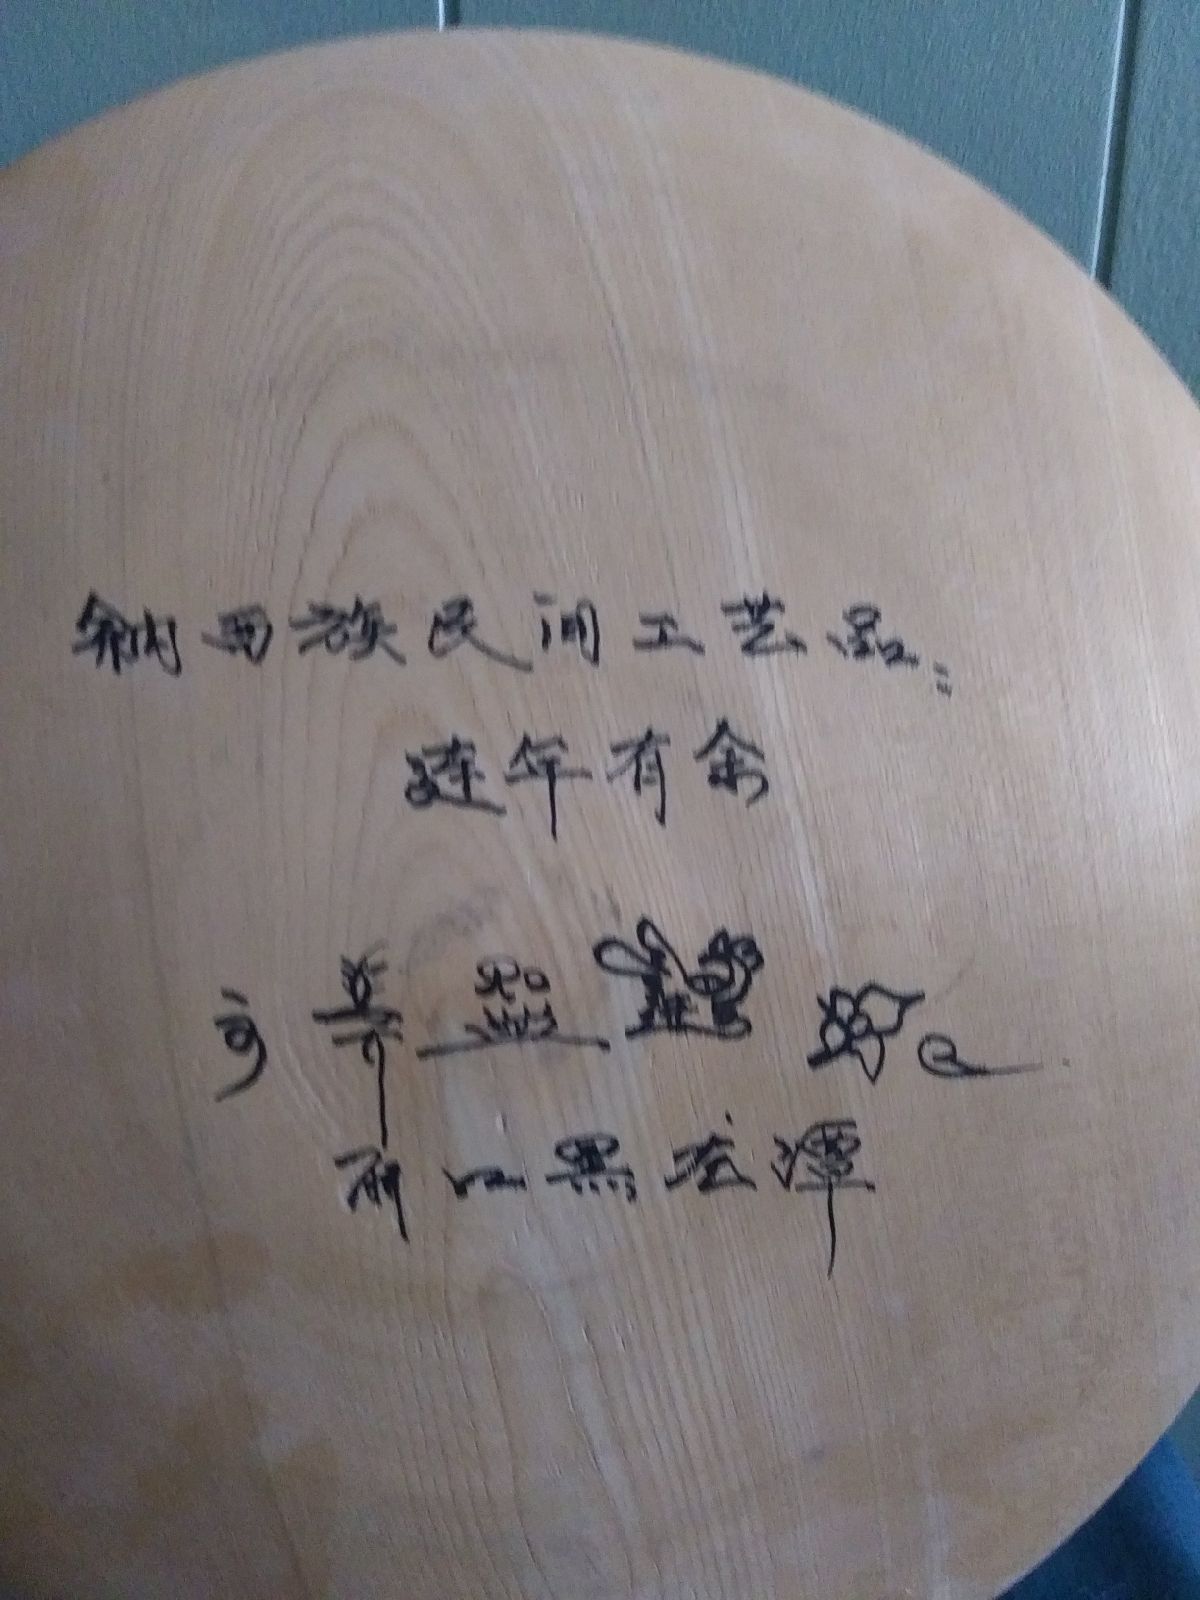 纳西族民间工艺品：
连年有余
丽江黑龙潭